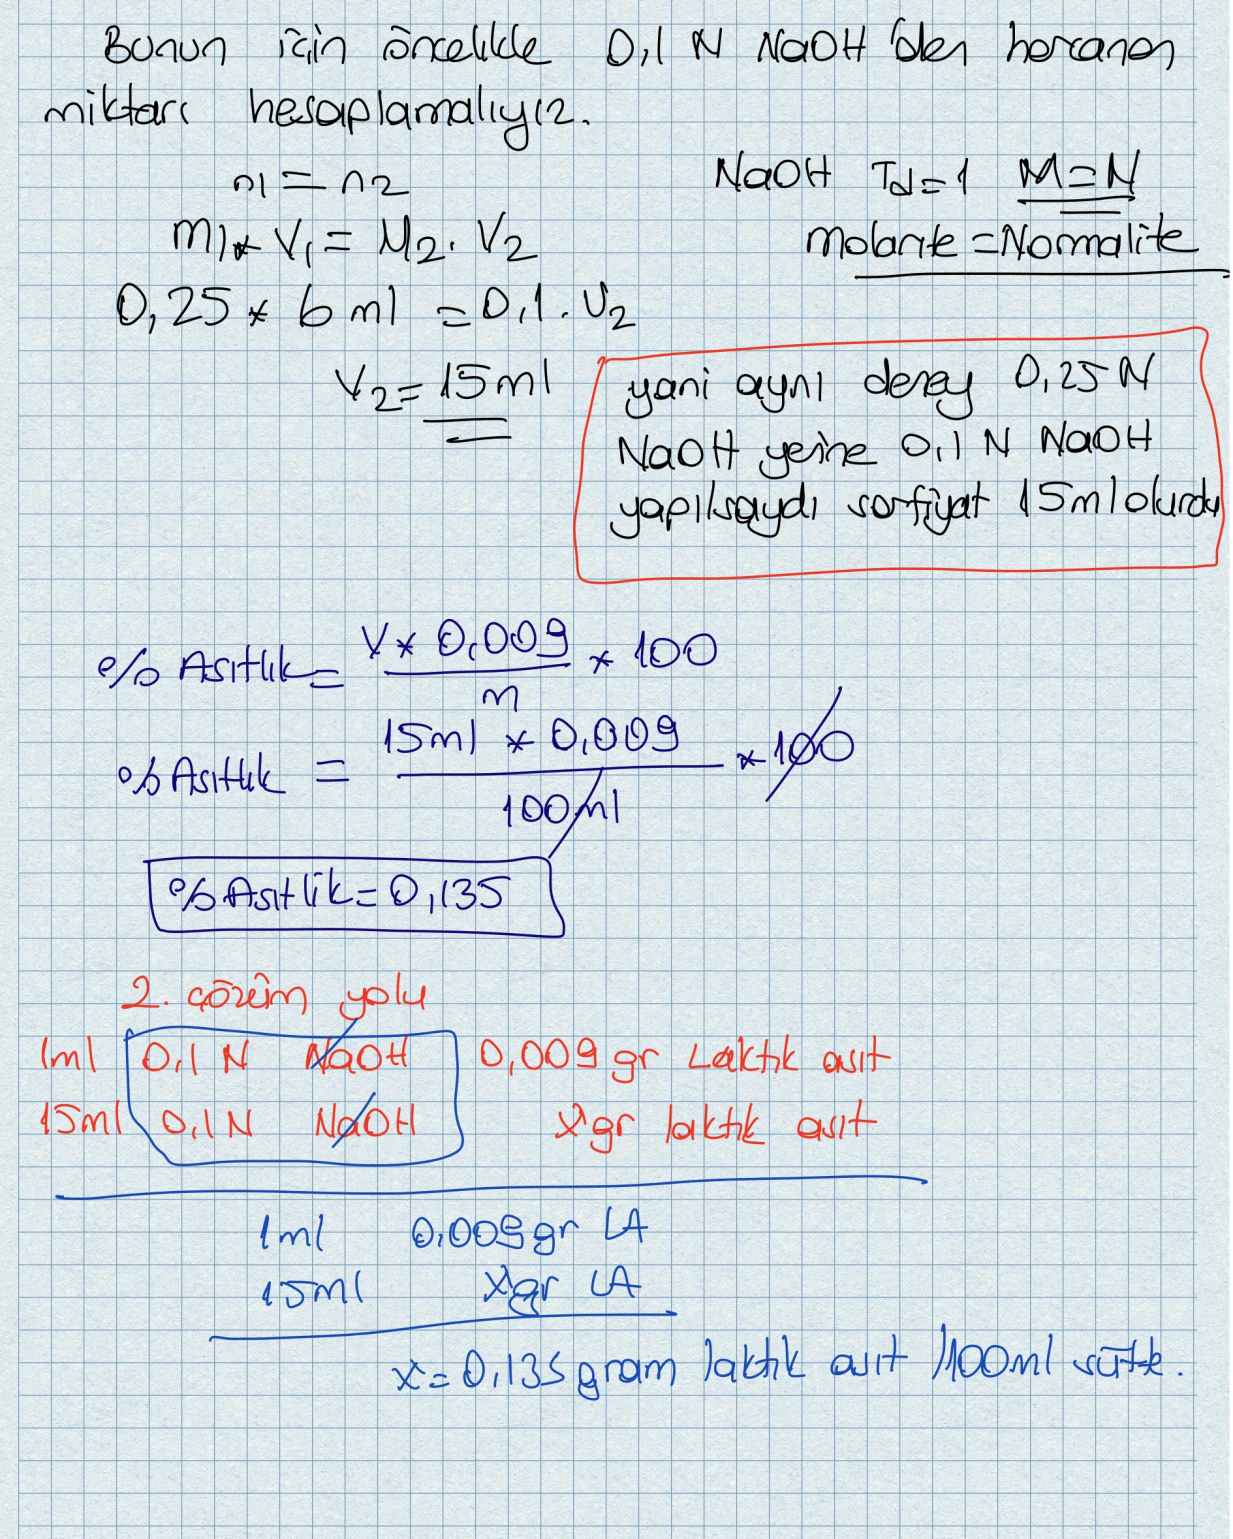 Bunun için öncelikle 0,1 N NaOH'den harcanan
miktarı hesaplamalıyız.
n1 = n2
NaOH Td=1 M=N
m1 * V1 = M2 . V2
Molarite = Normalite
0,25 * 6 ml = 0,1 . V2
V2 = 15 ml
yani aynı deney 0,25 N
NaOH yerine 0,1 N NaOH
yapılsaydı sarfiyat 15 ml olurdu
% Asitlik = V * 0,009 / m * 100
% Asitlik = 15 ml * 0,009 / 100 ml * 100
% Asitlik = 0,135
2. çözüm yolu
1ml 0,1 N NaOH 0,009 gr Laktik asit
15ml 0,1 N NaOH X gr laktik asit
1ml 0,009 gr LA
15ml X gr LA
x = 0,135 gram laktik asit /100ml sütte.